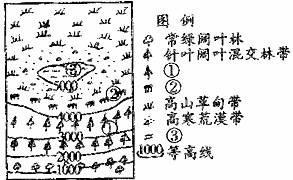 图 例
常绿阔叶林
针叶阔叶混交林带
①
②
高山草甸带
高寒荒漠带
③
1000 等高线
③
5000
②
4000
①
3000
2000
1000